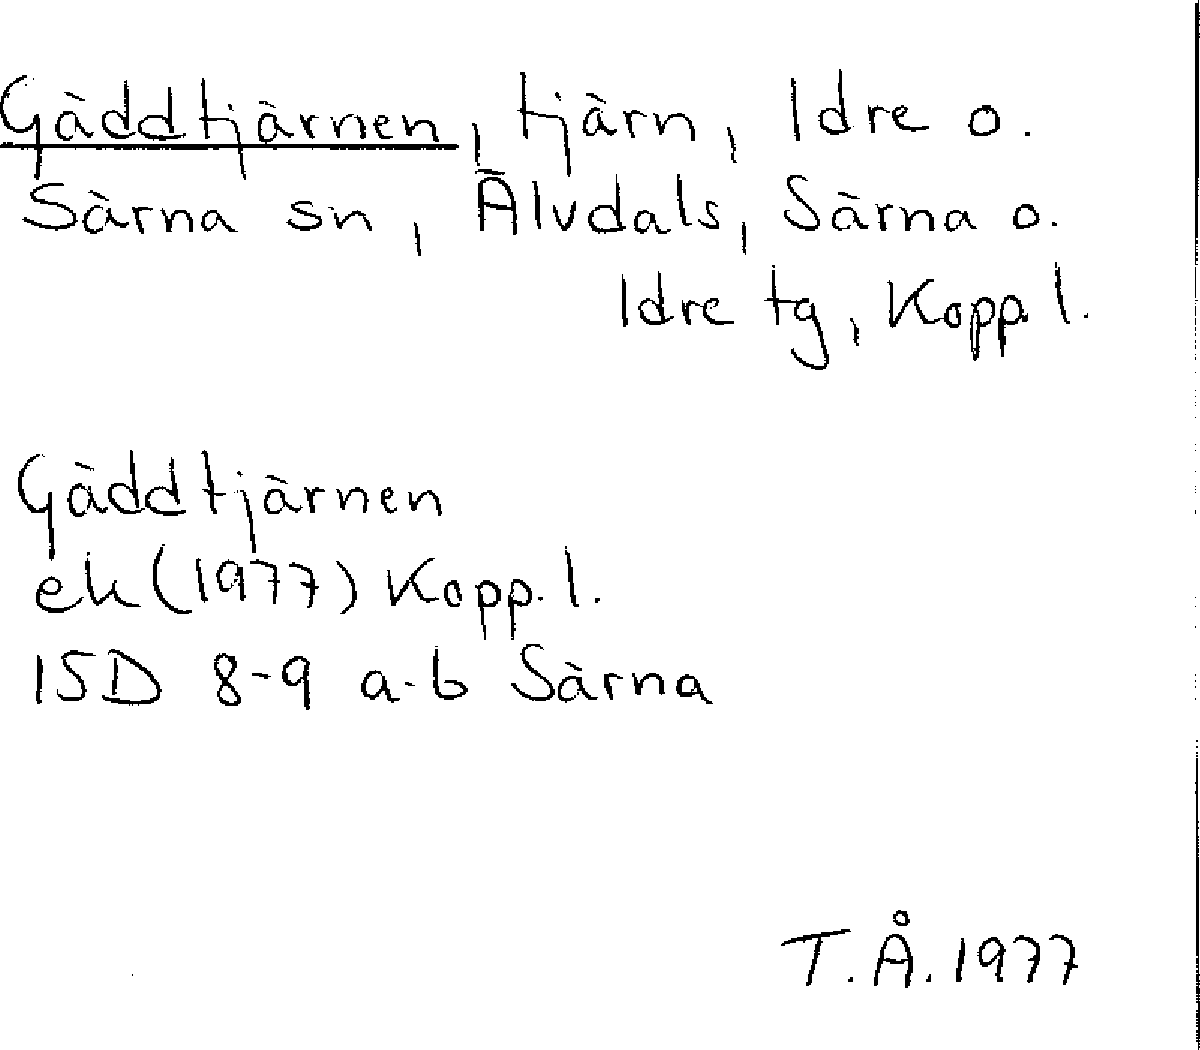 Gäddtjärnen, tjärn, Idre o.
Särna sn, Älvdals, Särna o.
Idre tg, Kopp l.
Gäddtjärnen
ek (1977) Kopp. l.
15D 8-9 a-b Särna
T.Å. 1977